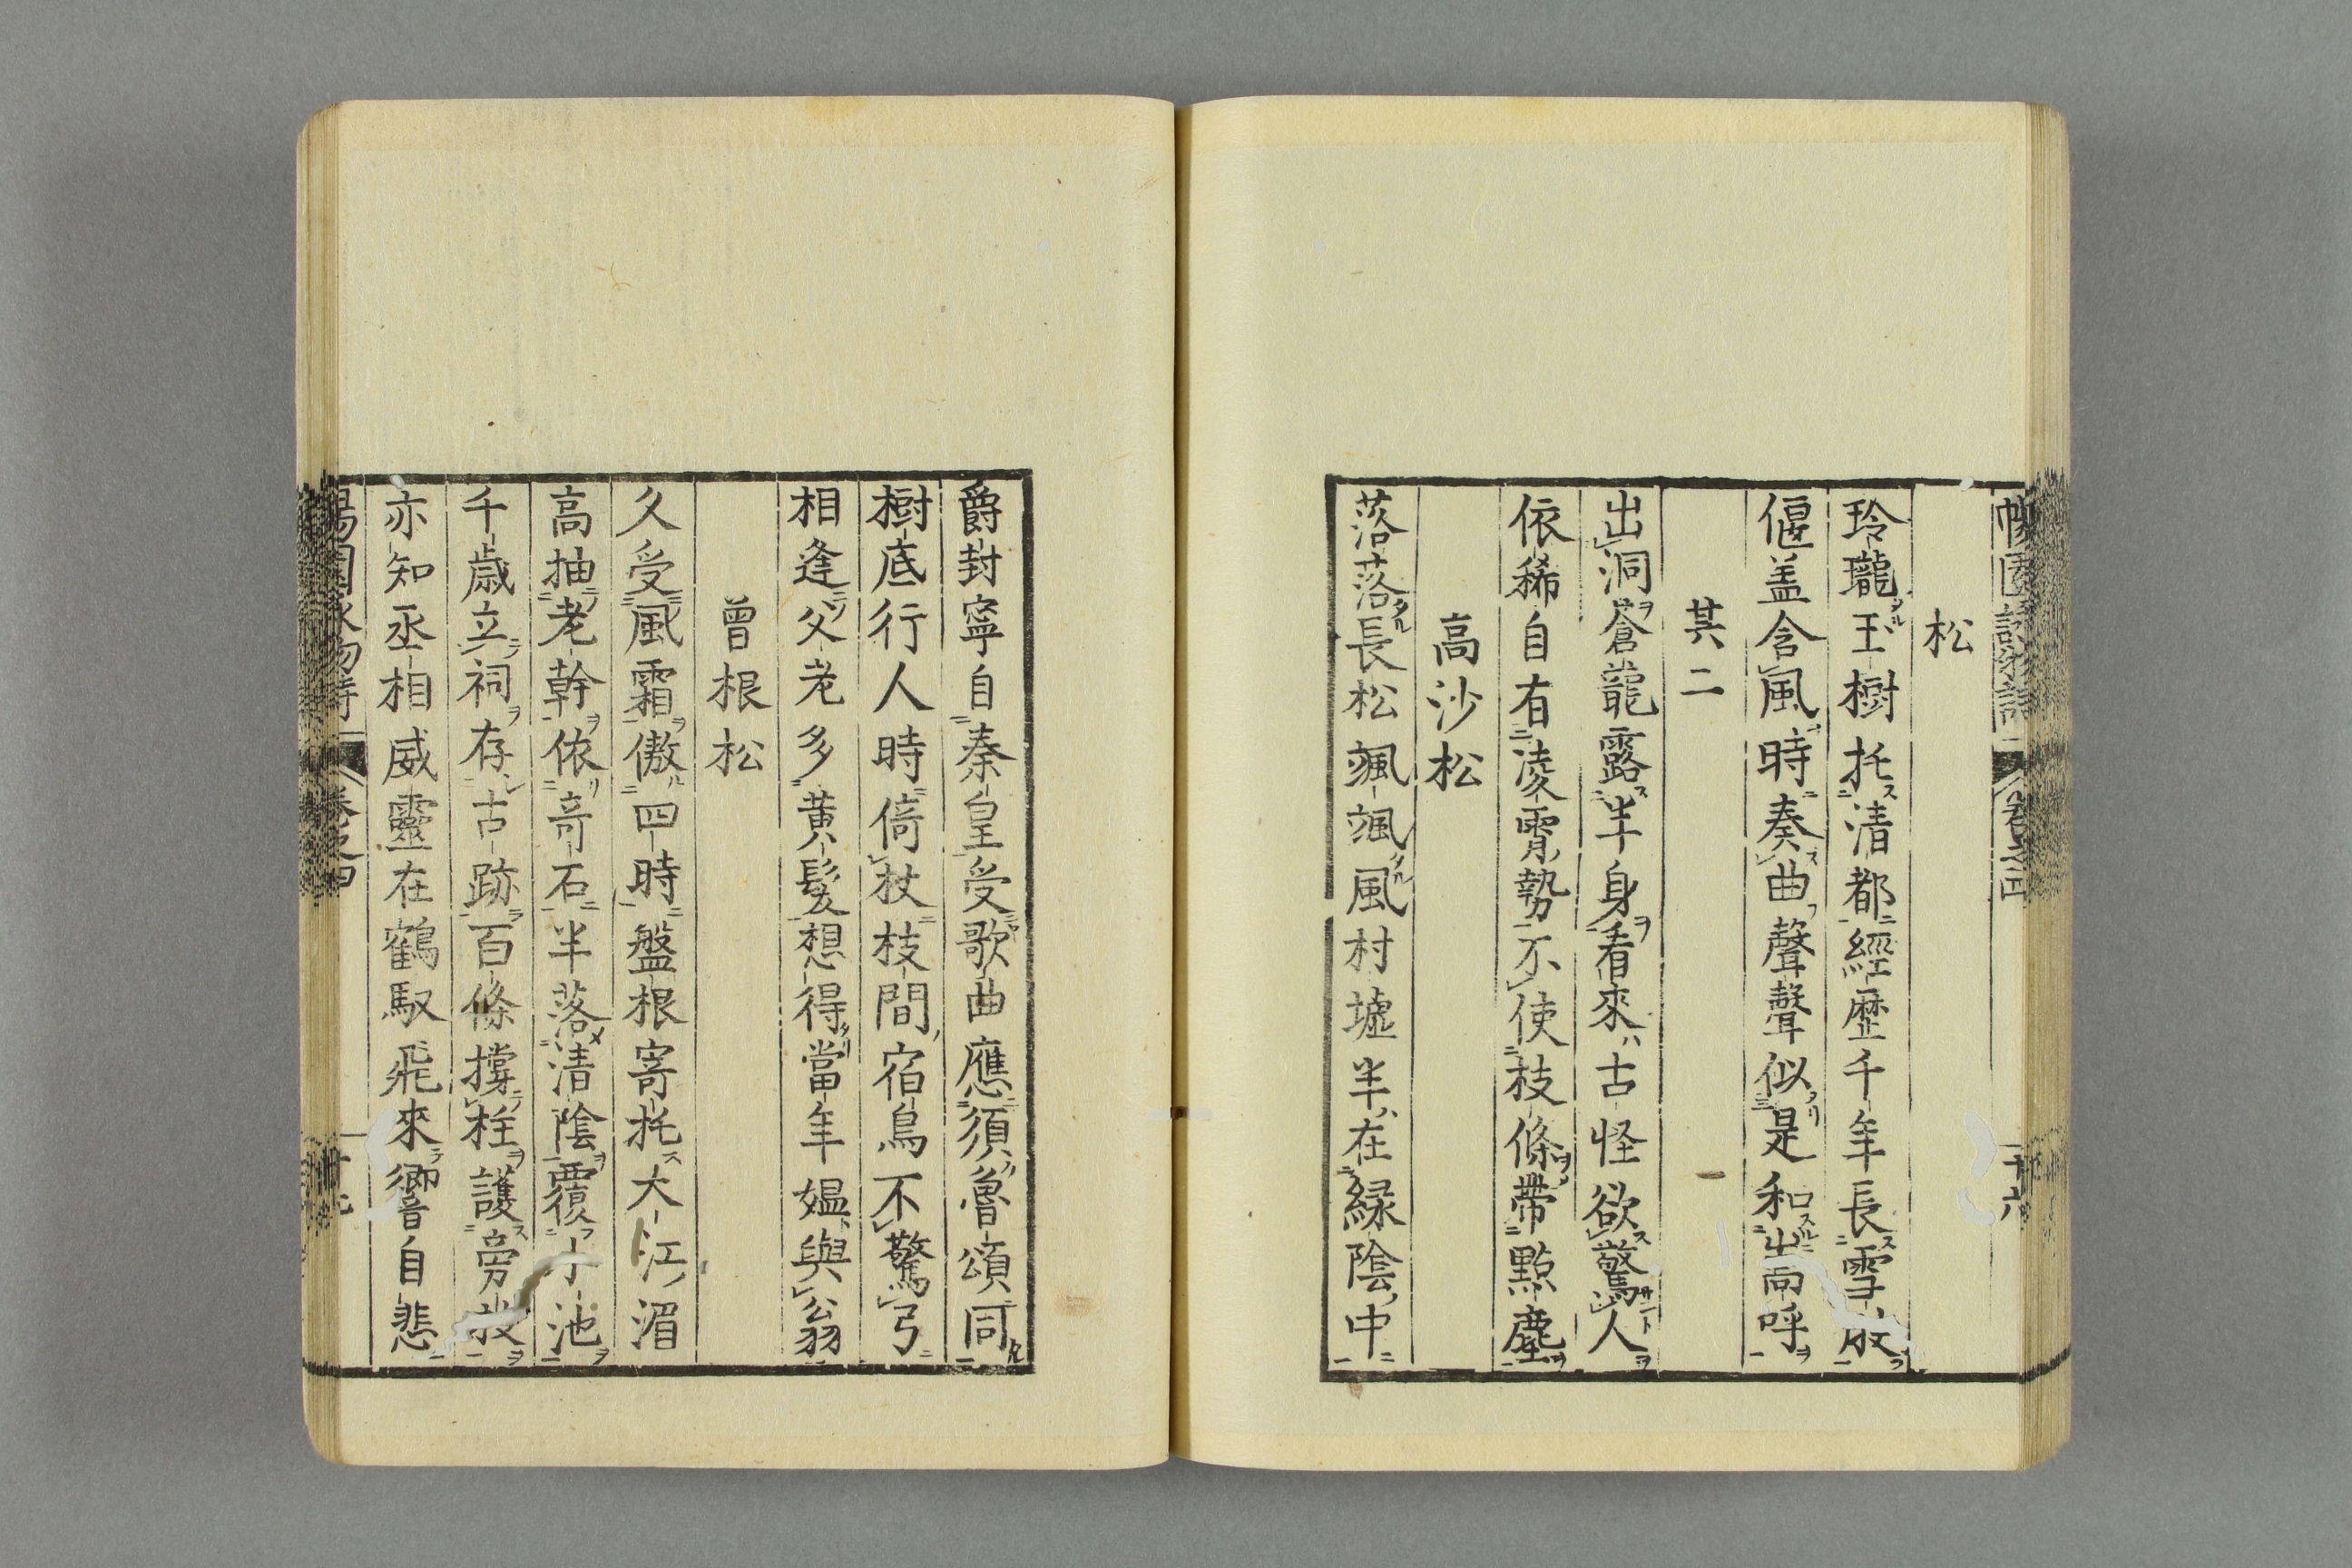 松
玲瓏玉樹托清都經歴千年長雪
偃盖含風時奏曲聲聲似是和嵩呼
其二
出洞蒼龍露半身看來古怪欲驚人
依稀自有凌霄勢不使枝條帶點塵
高沙松
落落長松颯颯風村墟半在緑陰中
爵封寧自秦皇受歌曲應須魯頌同
樹底行人時倚杖枝間宿鳥不驚弓
相逢父老多黄髪想得當年媼與翁
曾根松
久受風霜傲四時盤根寄托大江湄
高抽老幹依竒石半落清陰覆小池
千歳立祠存古跡百條撐柱護旁
亦知丞相威靈在鶴馭飛來響自悲
卷之四